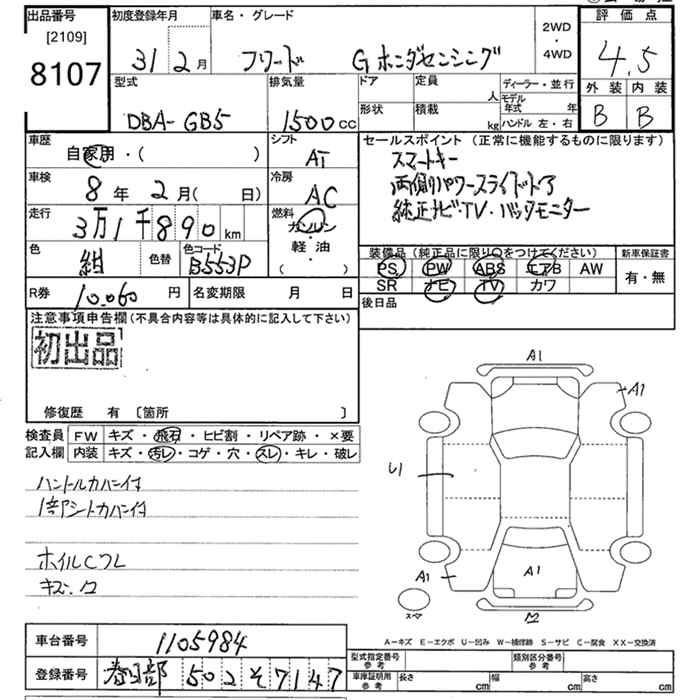 出品番号
[2109]
8107
初度登録年月
31 2月
車名・グレード
フリード Gホンダセンシング
2WD
・
4WD
評価点
4.5
外装 内装
B B
型式
DBA-GB5
排気量
1500cc
ドア
定員
人
形状
積載
kg
ディーラー・並行
モデル年式 年
ハンドル 左・右
車歴
自家用・( )
シフト
AT
車検
8年 2月( 日)
冷房
AC
走行
3万1千890km
燃料
ガソリン
軽・油
( )
色
紺
色替
色コード
B553P
R券
10,060円
名変期限 月 日
セールスポイント(正常に機能するものに限ります)
スマートキー
両側パワースライドドア
純正ナビ・TV・バックモニター
装備品(純正品に限り○をつけてください)
PS PW ABS エアB AW
SR ナビ TV カワ
新車保証書
有・無
後日品
注意事項申告欄(不具合内容等は具体的に記入して下さい)
初出品
修復歴 有 〔箇所 〕
検査員
記入欄
FW キズ・飛石・ヒビ割・リペア跡・×要
内装 キズ・汚レ・コゲ・穴・スレ・キレ・破レ
ハンドルカバー付
1部シートカバー付
ホイルCフレ
キズ・
A1
A1
U1
A1
A1
スペア
A-キズ E-エクボ U-凹み W-補修跡 S-サビ C-腐食 XX-交換済
車台番号
1105984
登録番号
春日部 502 そ7147
型式指定番号
参考
類別区分番号
参考
車庫証明用
参考
長さ cm
幅 cm
高さ cm